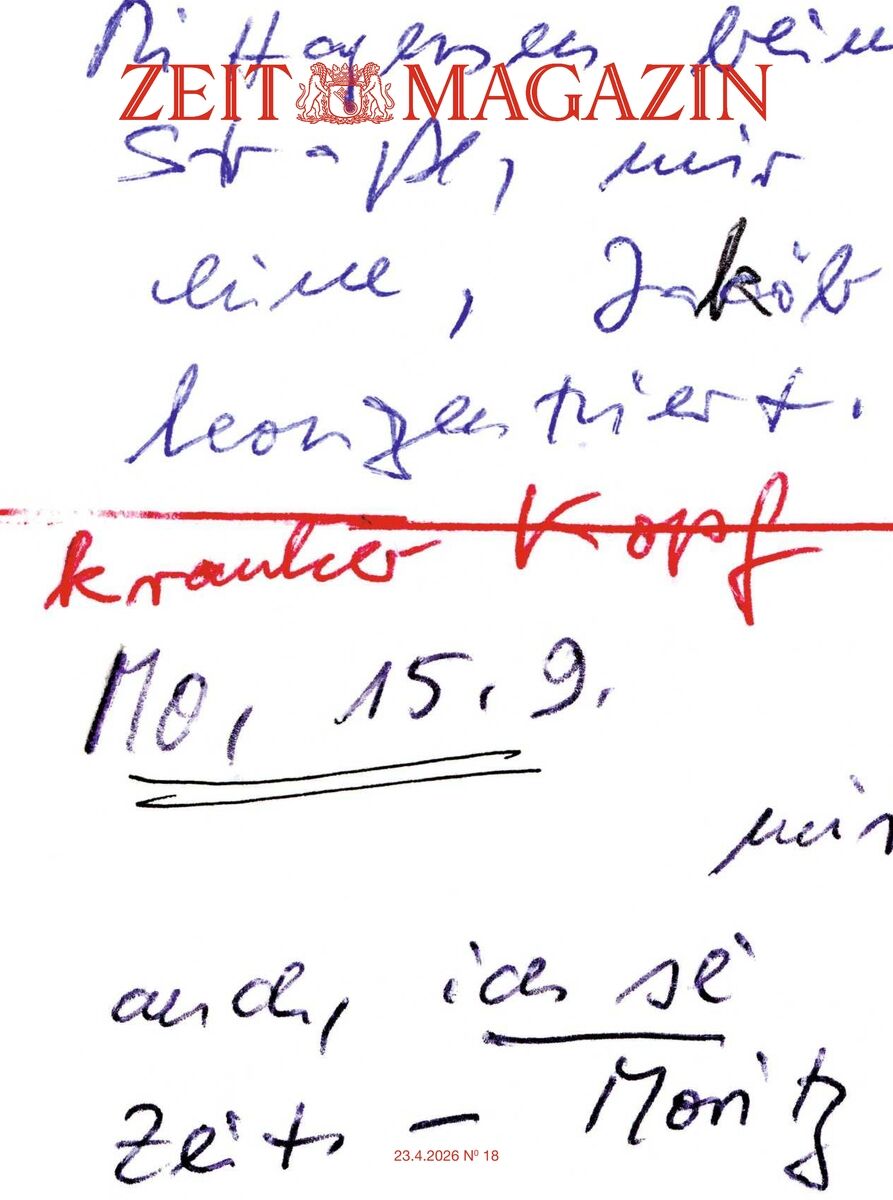 Mittagessen beim
ZEIT MAGAZIN
mir
eine, Jakob
konzentriert.
kranker Kopf
Mo, 15.9.
mir
auch, ich sei
Zeit, – Moritz
23.4.2026 Nº 18